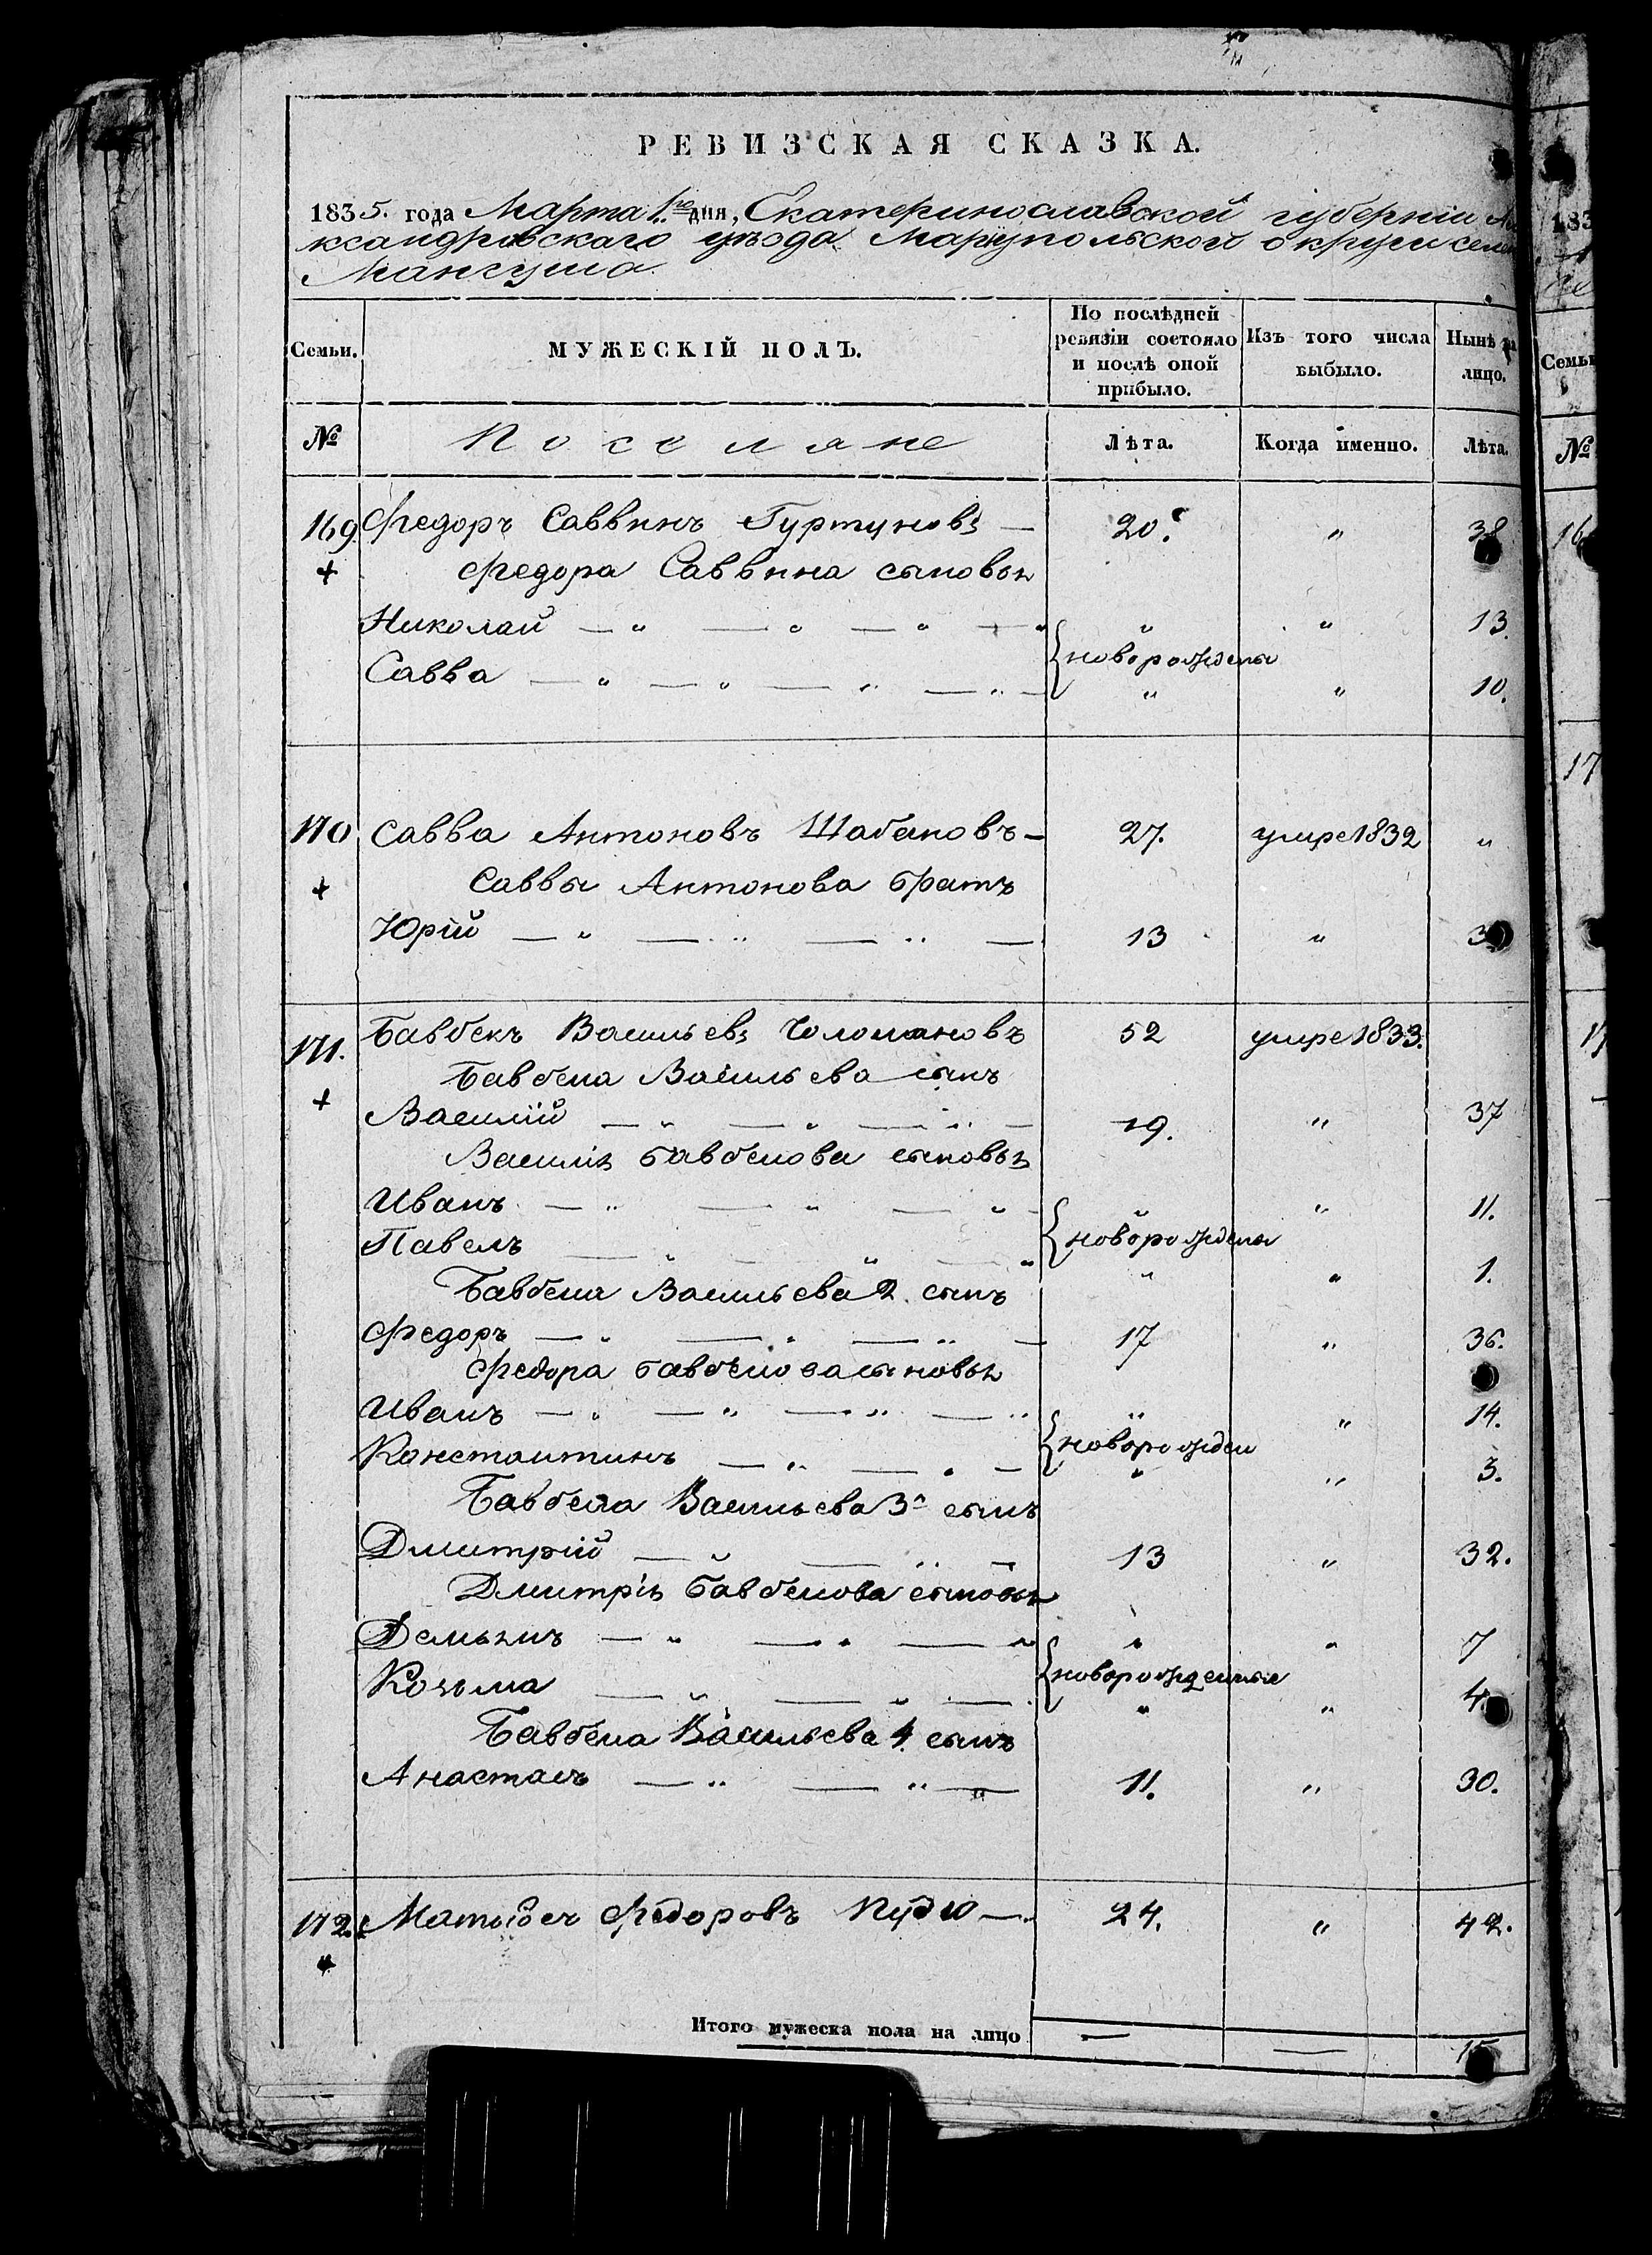 РЕВИЗСКАЯ СКАЗКА.
1835. года Марта 1го дня, Екатеринославской губерніи
ксандровскаго уѣзда Маріупольской округи
Мангуша
Семьи.
МУЖЕСКІЙ ПОЛЪ.
По послѣдней ревизіи состояло и послѣ оной прибыло.
Изъ того числа выбыло.
Нынѣ на лицо.
№ Поселяне Лѣта. Когда именно. Лѣта.
169 Федоръ Саввинъ Гуртуновъ — 20. " 38
+ Федора Саввина сыновья
Николай — " — " — " — " " " 13.
{новорождены
Савва — " — " — " — " — " " 10.
170 Савва Антоновъ Шабановъ — 27. умре 1832 "
+ Саввы Антонова братъ
Юрій — " — " — " — 13 "
171. Бавбекъ Васильевъ Чоломановъ 52 умре 1833.
Васильева сынъ
+ Василій — " — " — " — 19. " 37
Василія сыновья
Иванъ — " — " — " - " " 11.
{новорождены
Павелъ — " — " — " " " 1.
Васильева 2. сынъ
Федоръ — " — " — " — 17 " 36.
Федора сыновья
Иванъ — " — " — " — " " " 14.
{новорожден
Константинъ — " — " — " " 3.
Васильева 3й сынъ
Дмитрій — " — " — 13 " 32.
Дмитрія сыновья
Демьянъ — " — " — " " " 7
{новорожденные
Козьма — " — " — " " 4.
Васильева 4. сынъ
Анастасъ — " — " — 11. " 30.
172. Федоровъ — 24. " 42.
+
Итого мужеска пола на лицо — — 15
183
Семьи
№
16
17
17